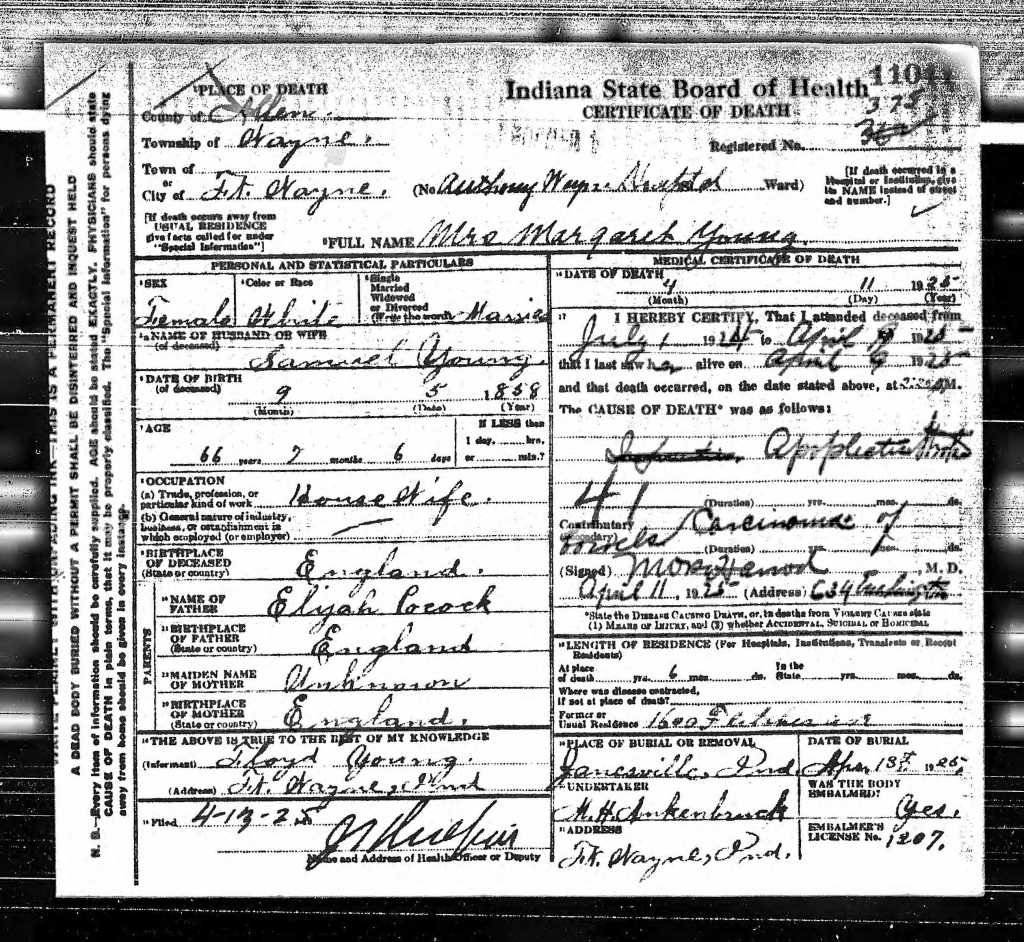 WRITE PLAINLY WITH UNFADING INK—THIS IS A PERMANENT RECORD
A DEAD BODY BURIED WITHOUT A PERMIT SHALL BE DISINTERRED AND INQUEST HELD
N. B.—Every item of information should be carefully supplied. AGE should be stated EXACTLY. PHYSICIANS should state
CAUSE OF DEATH in plain terms, that it may be properly classified. The "Special Information" for persons dying
away from home should be given in every instance.
PLACE OF DEATH
County of Allen.
Township of Wayne.
Town of
or
City of Ft. Wayne.
[If death occurs away from
USUAL RESIDENCE
give facts called for under
"Special Information"]
Indiana State Board of Health
CERTIFICATE OF DEATH
375
Registered No.
(No Anthony Wayne Hospital Ward)
[If death occurred in a
Hospital or Institution, give
its NAME instead of street
and number.]
FULL NAME Mrs Margaret Young.
PERSONAL AND STATISTICAL PARTICULARS
SEX
Female
Color or Race
White
Single
Married
Widowed
or Divorced
(Write the word) Married
NAME OF HUSBAND OR WIFE
(of deceased)
Samuel Young.
DATE OF BIRTH
(of deceased)
9 5 1858
(Month) (Date) (Year)
AGE
66 years 7 months 6 days
If LESS than
1 day, hrs.
or min.?
OCCUPATION
(a) Trade, profession, or
particular kind of work House Wife.
(b) General nature of industry,
business, or establishment in
which employed (or employer)
BIRTHPLACE
OF DECEASED
(State or country)
England.
PARENTS
NAME OF
FATHER
Elijah Pocock
BIRTHPLACE
OF FATHER
(State or country)
England
MAIDEN NAME
OF MOTHER
Unknown
BIRTHPLACE
OF MOTHER
(State or country)
England.
THE ABOVE IS TRUE TO THE BEST OF MY KNOWLEDGE
(Informant) Floyd Young.
(Address) Ft. Wayne, Ind
Filed 4-13-25
Name and Address of Health Officer or Deputy
MEDICAL CERTIFICATE OF DEATH
DATE OF DEATH
4 11 1925
(Month) (Day) (Year)
17 I HEREBY CERTIFY, That I attended deceased from
July, 1924 to April 1925
that I last saw her alive on April 9 1925
and that death occurred, on the date stated above, at M.
The CAUSE OF DEATH* was as follows:
Apoplectic Stroke
41
(Duration) yrs. mos. ds.
Contributory Carcinoma of
(Secondary) bowels
(Duration) yrs. mos. ds.
(Signed) M.D.
April 11, 1925 (Address) 634
*State the DISEASE CAUSING DEATH, or, in deaths from VIOLENT CAUSES state
(1) MEANS OF INJURY, and (2) whether ACCIDENTAL, SUICIDAL or HOMICIDAL
LENGTH OF RESIDENCE (For Hospitals, Institutions, Transients or Recent
Residents)
At place
of death yrs. 6 mos. ds.
In the
State yrs. mos. ds.
Where was disease contracted,
if not at place of death?
Former or
Usual Residence
PLACE OF BURIAL OR REMOVAL
Janesville, Ind.
DATE OF BURIAL
Apr. 13th 1925.
UNDERTAKER
M. H. Ankenbruck
WAS THE BODY
EMBALMED?
Yes.
ADDRESS
Ft. Wayne, Ind.
EMBALMER'S
LICENSE No. 1207.